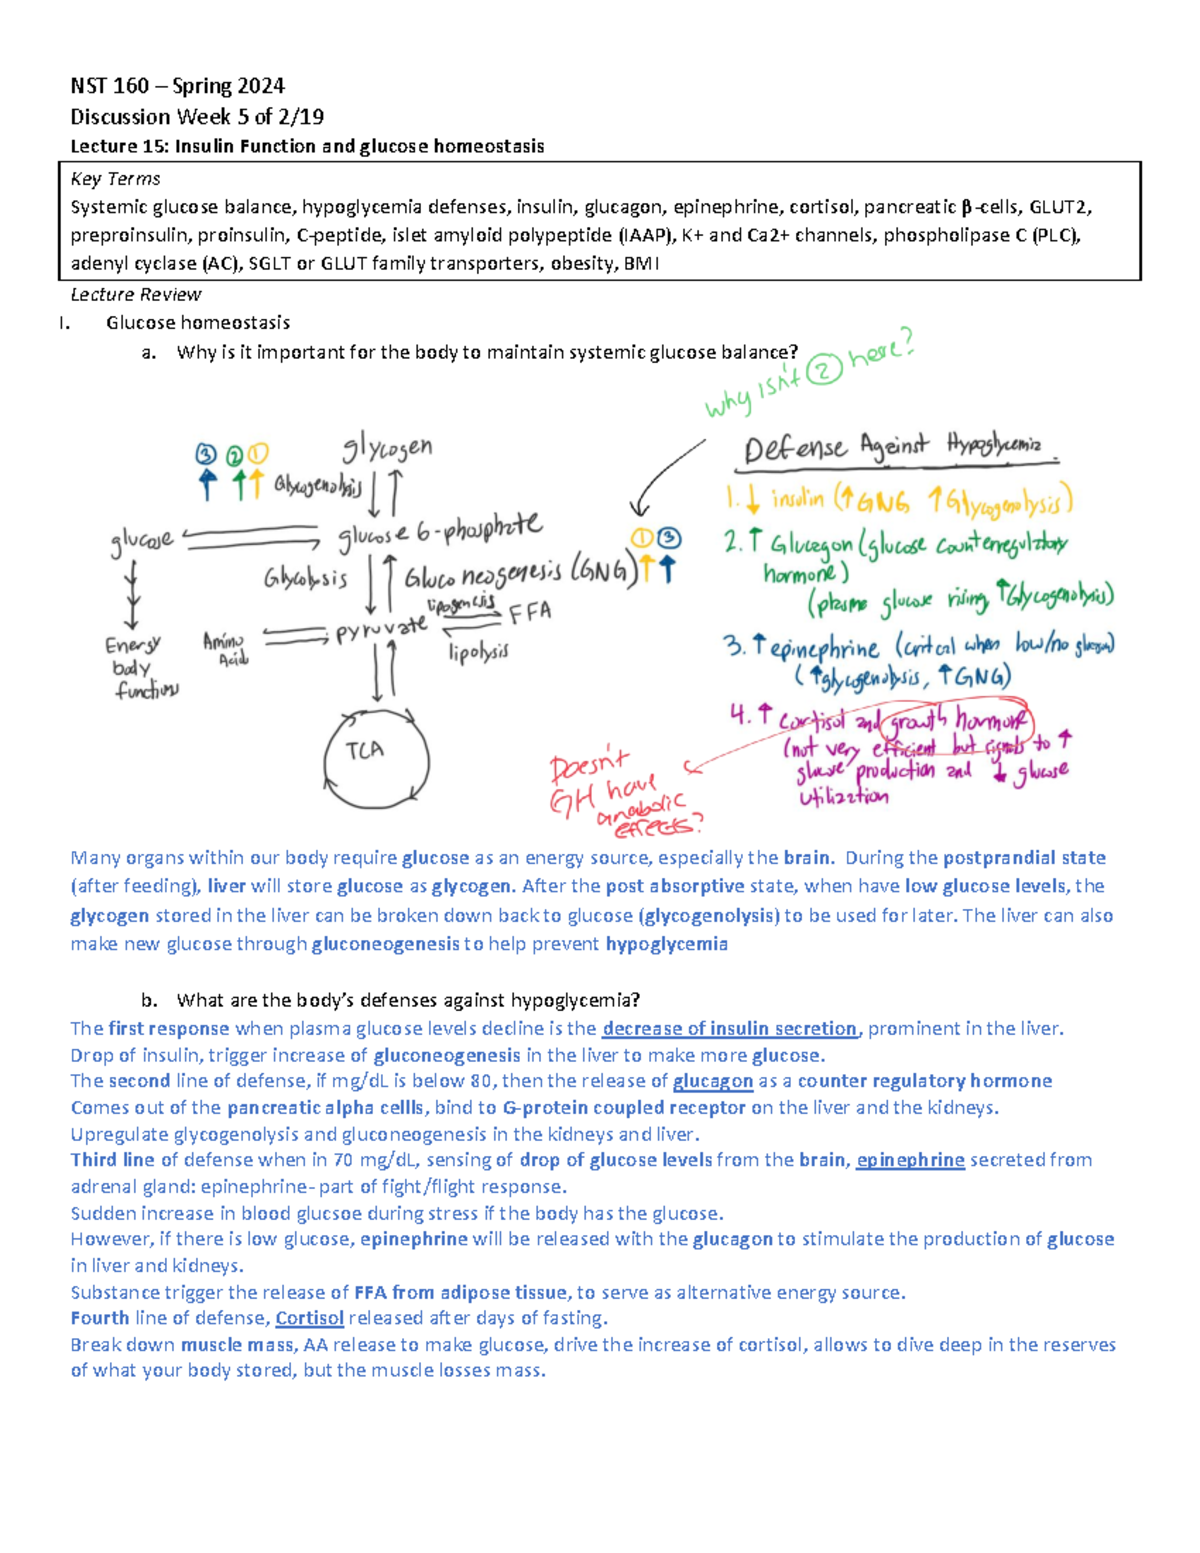 NST 160 – Spring 2024
Discussion Week 5 of 2/19
Lecture 15: Insulin Function and glucose homeostasis
Key Terms
Systemic glucose balance, hypoglycemia defenses, insulin, glucagon, epinephrine, cortisol, pancreatic β-cells, GLUT2,
preproinsulin, proinsulin, C-peptide, islet amyloid polypeptide (IAAP), K+ and Ca2+ channels, phospholipase C (PLC),
adenyl cyclase (AC), SGLT or GLUT family transporters, obesity, BMI
Lecture Review
I. Glucose homeostasis
a. Why is it important for the body to maintain systemic glucose balance?
why isn't ② here?
③ ② ① glycogen
↑ ↑ ↑ Glycogenolysis
glucose glucose 6-phosphate
Glycolysis Gluconeogenesis (GNG) ↑ ↑
① ③
Energy
body
function
Amino
Acid
pyruvate
lipogenesis
FFA
lipolysis
TCA
Defense Against Hypoglycemia
1. ↓ insulin (↑GNG ↑Glycogenolysis)
2. ↑ Glucagon (glucose counterregulatory
hormone)
(plasma glucose rising ↑Glycogenolysis)
3. ↑ epinephrine (critical when low/no glucagon)
(↑glycogenolysis, ↑GNG)
4. ↑ cortisol and growth hormone
(not very efficient but signals to ↑
glucose production and ↓ glucose
utilization
Doesn't
GH have
anabolic
effects?
Many organs within our body require glucose as an energy source, especially the brain. During the postprandial state
(after feeding), liver will store glucose as glycogen. After the post absorptive state, when have low glucose levels, the
glycogen stored in the liver can be broken down back to glucose (glycogenolysis) to be used for later. The liver can also
make new glucose through gluconeogenesis to help prevent hypoglycemia
b. What are the body's defenses against hypoglycemia?
The first response when plasma glucose levels decline is the decrease of insulin secretion, prominent in the liver.
Drop of insulin, trigger increase of gluconeogenesis in the liver to make more glucose.
The second line of defense, if mg/dL is below 80, then the release of glucagon as a counter regulatory hormone
Comes out of the pancreatic alpha cellls, bind to G-protein coupled receptor on the liver and the kidneys.
Upregulate glycogenolysis and gluconeogenesis in the kidneys and liver.
Third line of defense when in 70 mg/dL, sensing of drop of glucose levels from the brain, epinephrine secreted from
adrenal gland: epinephrine- part of fight/flight response.
Sudden increase in blood glucsoe during stress if the body has the glucose.
However, if there is low glucose, epinephrine will be released with the glucagon to stimulate the production of glucose
in liver and kidneys.
Substance trigger the release of FFA from adipose tissue, to serve as alternative energy source.
Fourth line of defense, Cortisol released after days of fasting.
Break down muscle mass, AA release to make glucose, drive the increase of cortisol, allows to dive deep in the reserves
of what your body stored, but the muscle losses mass.